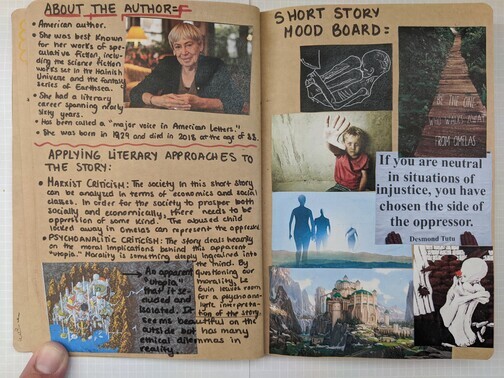 ABOUT THE AUTHOR=
American author.
She was best known
for her works of spe-
culative fiction, inclu-
ding the science fiction
works set in the Hainish
Universe and the fantasy
series of Earthsea.
She had a literary
career spanning nearly
sixty years.
Has been called a "major voice in American Letters."
She was born in 1929 and died in 2018 at the age of 88.
APPLYING LITERARY APPROACHES TO
THE STORY:
MARXIST CRITICISM: The society in this short story
can be analyzed in terms of economics and social
classes. In order for the society to prosper both
socially and economically, there needs to be
oppression of some kind. The abused child
locked away in Omelas can represent the oppressed
PSYCHOANALITIC CRITICISM: The story deals heavily
on the moral implications behind this apparent
"utopia." Morality is something deeply ingrained into
the mind. By
questioning our
morality, Le
Guin leaves room
for a psychoana-
lytic interpreta-
tion of the story.
An apparent
"utopia"
that is se-
cluded and
isolated. It
seems beautiful on the
outside but has many
ethical dilemmas in
reality.
SHORT STORY
MOOD BOARD=
BE THE ONE
WHO WALKS AWAY
FROM OMELAS
If you are neutral
in situations of
injustice, you have
chosen the side of
the oppressor.
Desmond Tutu